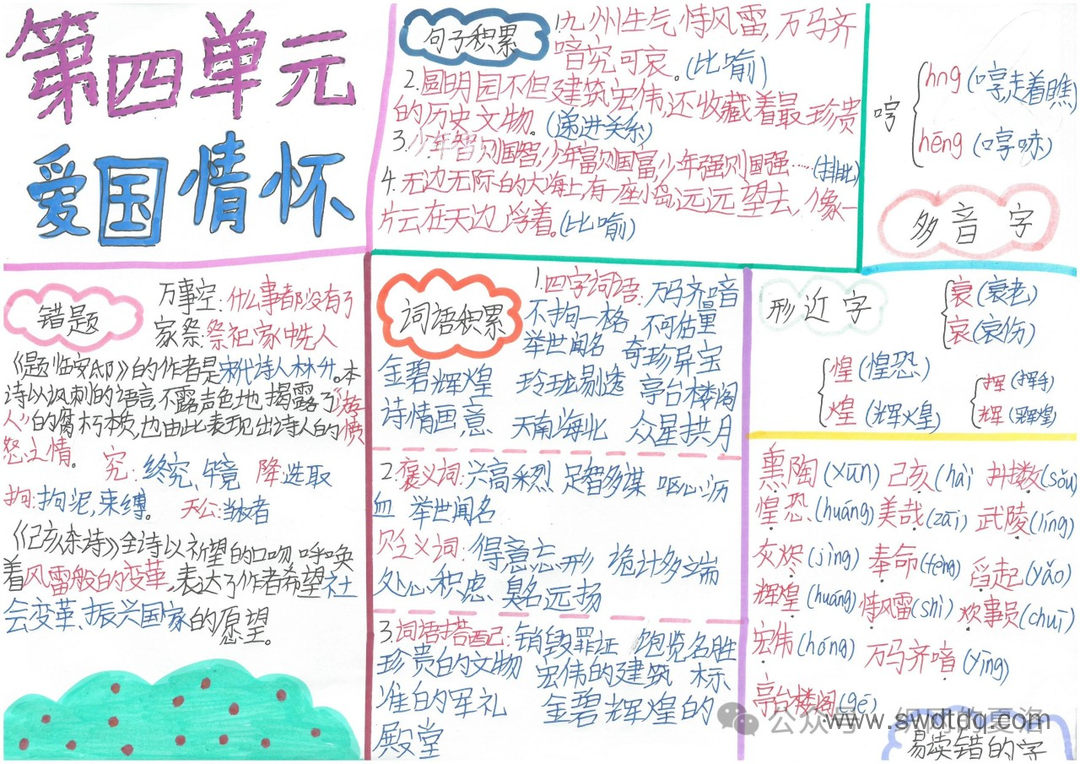 第四单元
爱国情怀
句子积累
1.九州生气恃风雷,万马齐
喑究可哀。(比喻)
2.圆明园不但建筑宏伟,还收藏着最珍贵
的历史文物。(递进关系)
3.少年智则国智,少年富则国富,少年强则国强……(排比)
4.无边无际的大海上,有一座小岛远远望去,像一
片云在天边浮着。(比喻)
哼
hng(哼,走着瞧)
hēng(哼咏)
多音字
错题
万事空:什么事都没有了
家祭:祭祀家中先人
《题临安邸》的作者是宋代诗人林升。本
诗以讽刺的语言,不露声色地揭露了“游
人”的腐朽本质,也由此表现出诗人的愤
怒之情。 究:终究,毕竟 降:选取
拘:拘泥,束缚。 天公:当权者
《己亥杂诗》全诗以祈望的口吻呼唤
着风雷般的变革,表达了作者希望社
会变革、振兴国家的愿望。
词语积累
1.四字词语:万马齐喑
不拘一格 不可估量
举世闻名 奇珍异宝
金碧辉煌 玲珑剔透 亭台楼阁
诗情画意 天南海北 众星拱月
2.褒义词:兴高采烈 足智多谋 呕心沥
血 举世闻名
贬义词:得意忘形 诡计多端
处心积虑 臭名远扬
3.词语搭配:销毁罪证 饱览名胜
珍贵的文物 宏伟的建筑 标
准的军礼 金碧辉煌的
殿堂
形近字
衰(衰老)
哀(哀伤)
惶(惶恐)
煌(辉煌)
挥(挥手)
辉(辉煌)
熏陶(xūn) 己亥(hài) 抖擞(sǒu)
惶恐(huáng) 美哉(zāi) 武陵(líng)
灰烬(jìng) 奉命(fèng) 舀起(yǎo)
辉煌(huáng) 恃风雷(shì) 炊事员(chuī)
宏伟(hóng) 万马齐喑(yīng)
亭台楼阁(gé)
易读错的字
公众号
www.swdtdq.com